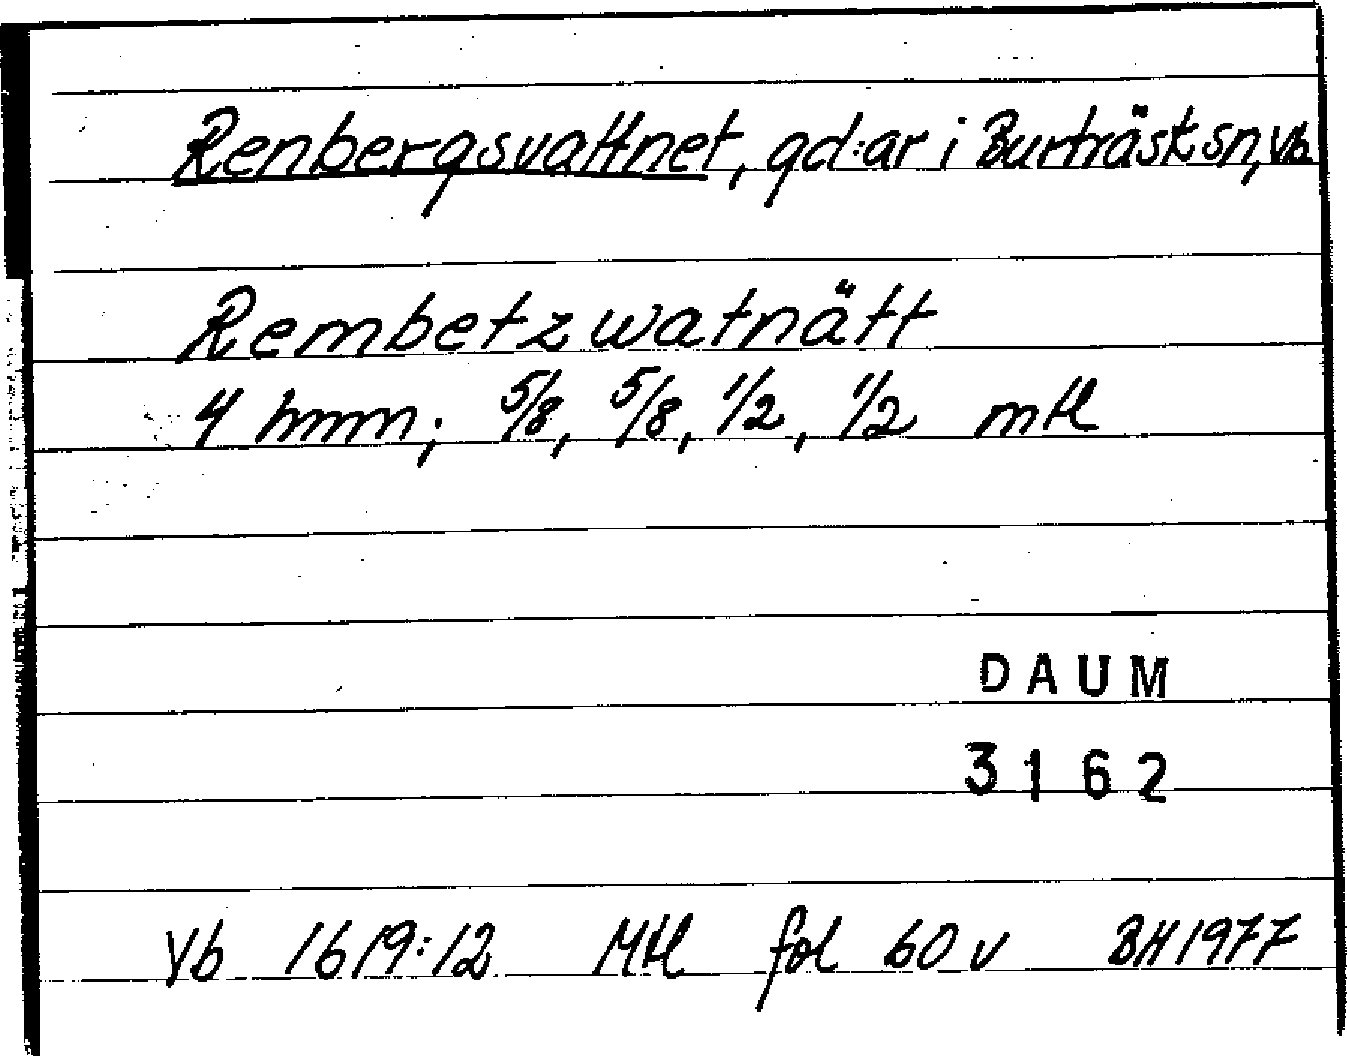 Renbergsvattnet, gd:ar i Burträsk sn, Vb.
Rembetzwatnätt
4 hmm; 5/8, 5/8, 1/2, 1/2 mtl
DAUM
3162
Vb 1619:12 Mtl fol 60 v BH 1977